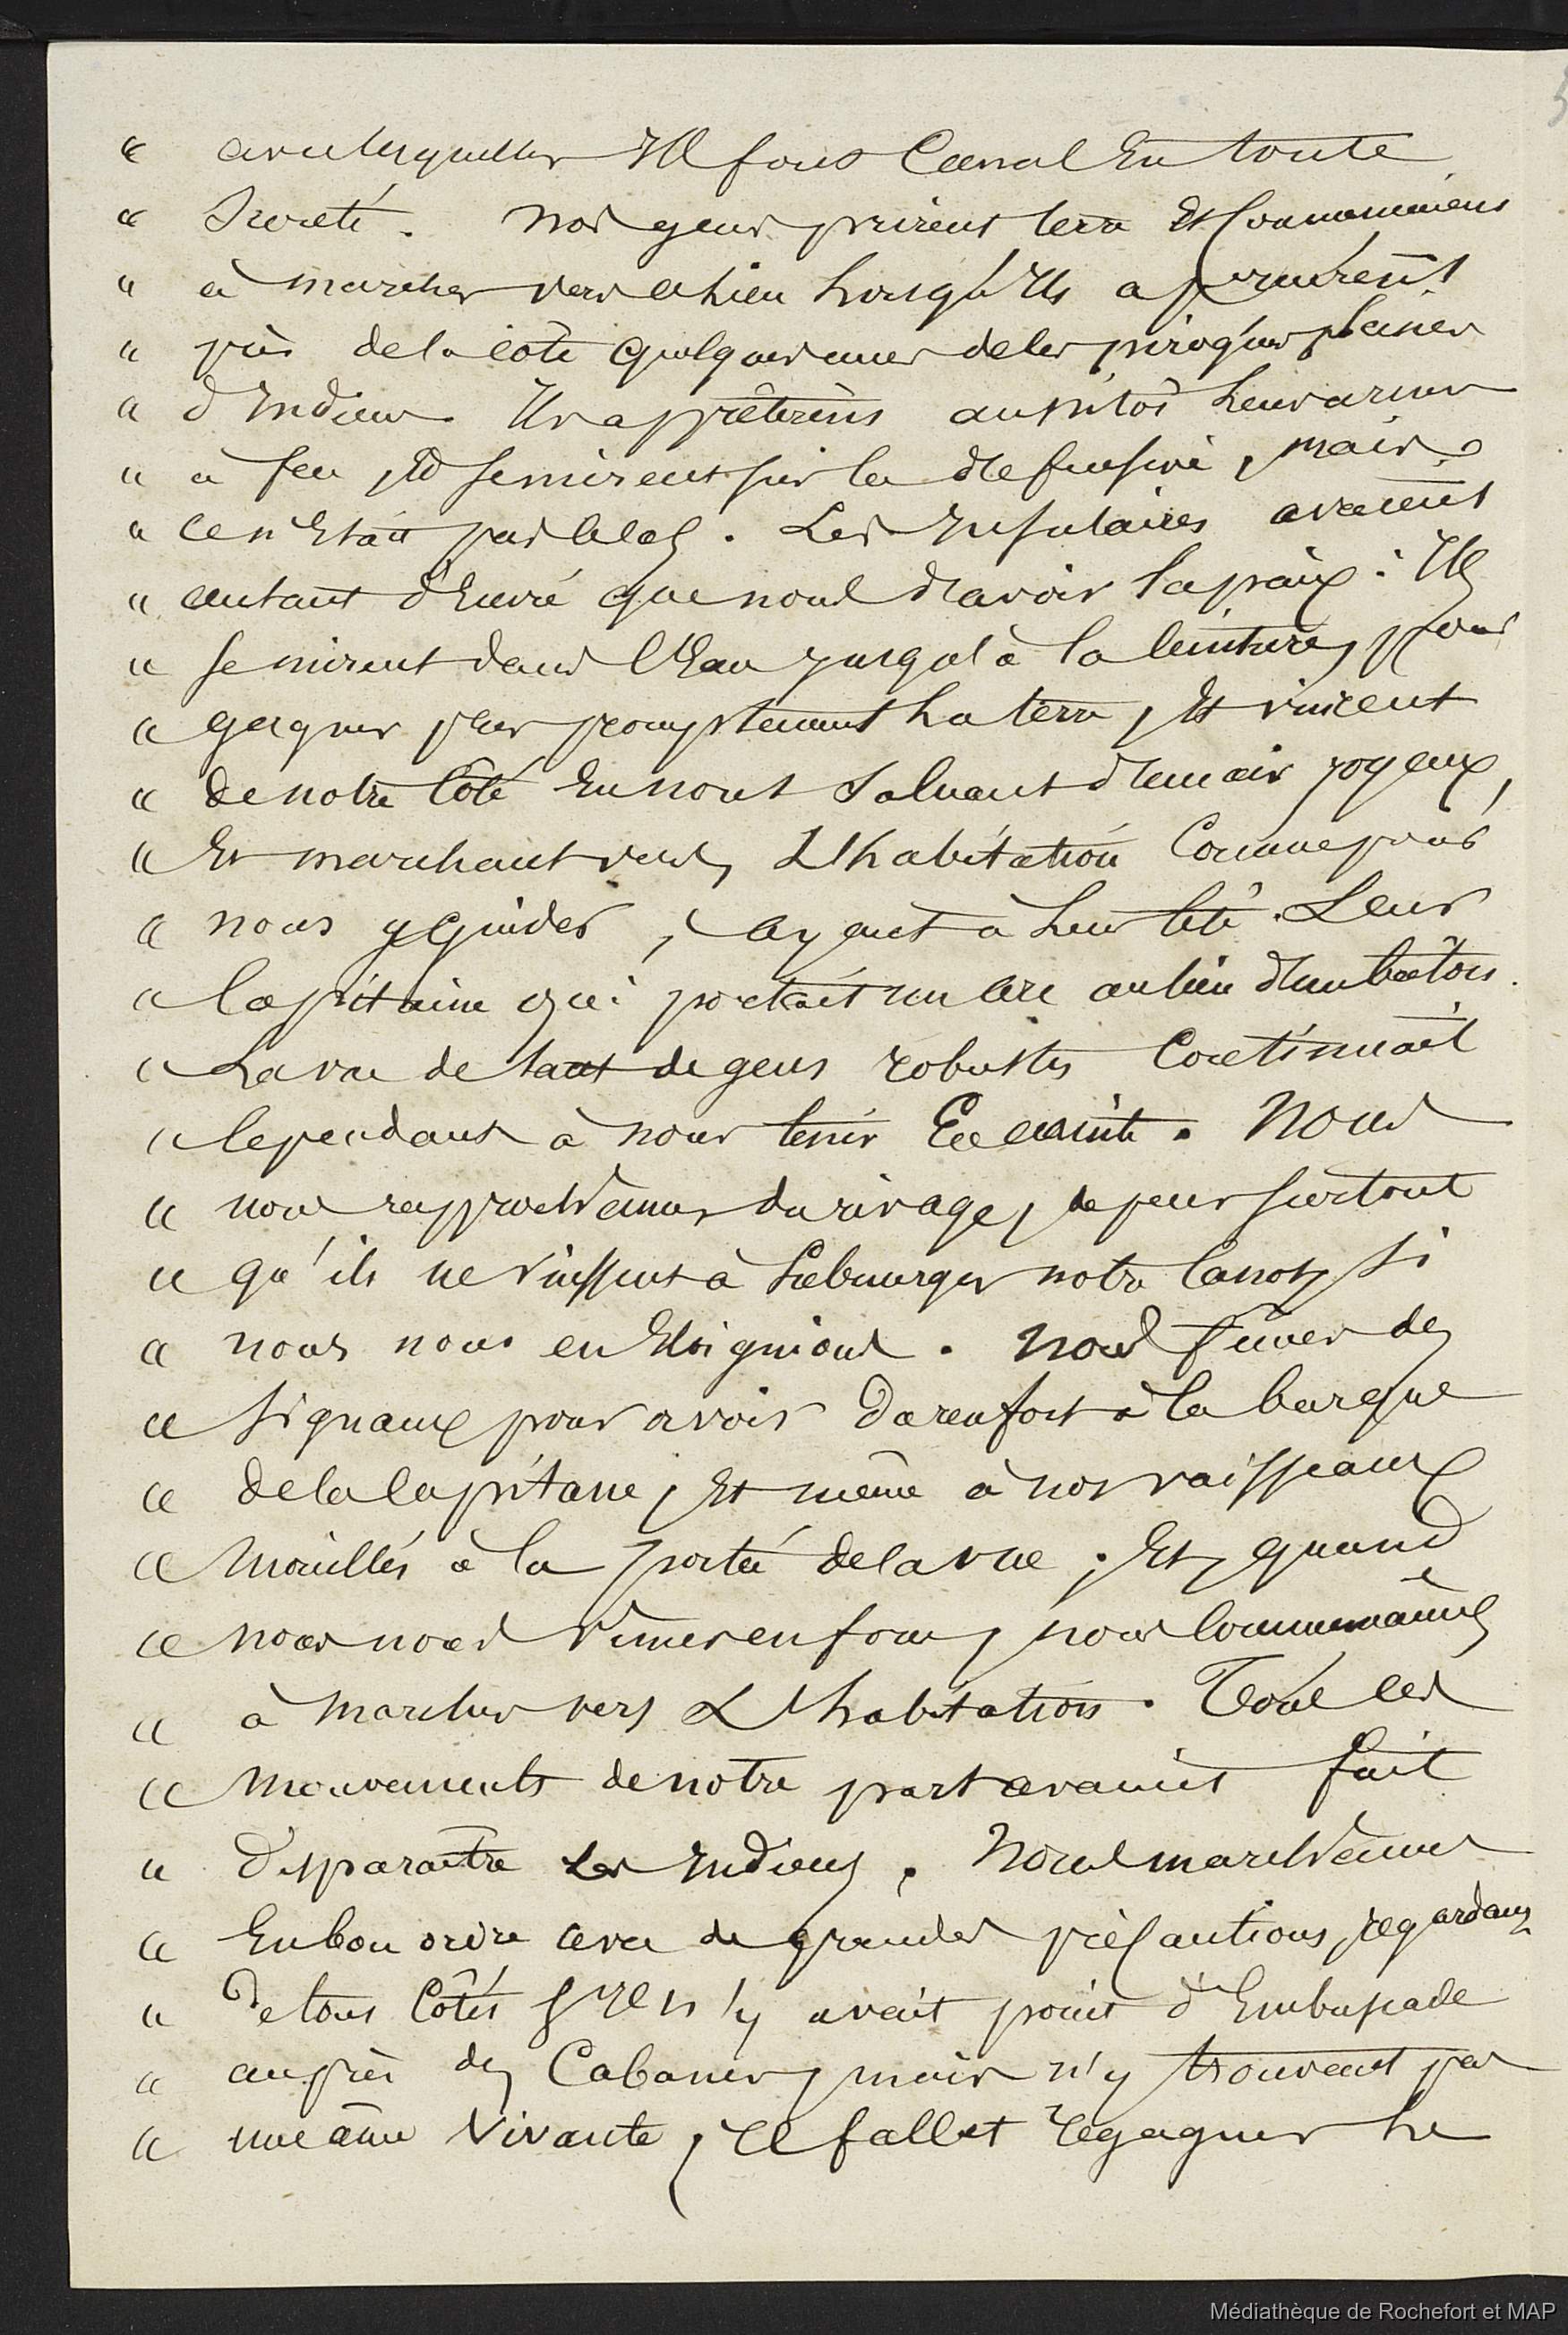 « avec lesquelles Ils font Canal En toute
« Sureté. Nos gens prirent terre Et Commencaient
« à marcher vers ce lieu Lorsqu'Ils aperçurent
« près de la côte quelques unes de les pirogues pleines
« d'Indiens. Ils apprêtèrent aussitôt Leurs armes
« à feu, Et se mirent sur la défensive, mais
« Ce n'Etait pas cela. Les Insulaires avaient
« autant d'Envie que nous d'avoir la paix : Ils
« se mirent dans l'Eau jusqu'à la Ceinture, pour
« gagner plus promptement La terre, Et vinrent
« de notre Côté En nous Saluant d'un air joyeux,
« Et marchant vers L'habitation Comme pour
« nous y Guider, ayant à Leur tête Leur
« Capitaine qui portait un arc au lieu d'un bâton.
« La vue de tant de gens robustes Continuait
« Cependant à nous tenir En crainte. Nous
« nous rapprochâmes du rivage, de peur surtout
« qu'ils ne vinssent à Submerger notre Canot, Si
« nous nous en Eloignions. Nous fîmes des
« Signaux pour avoir du renfort à la barque
« de la Capitane, Et même à nos vaisseaux
« Mouillés à la portée de la vue ; Et, quand
« nous nous vîmes en force, nous Commençâmes
« à Marcher vers L'habitation. Tous ces
« Mouvements de notre part avaient fait
« Disparaître Les Indiens. Nous marchâmes
« En bon ordre avec de grandes précautions, regardans
« De tous Côtés S'Il n'y avait point d'Embuscade
« auprès des Cabanes, mais n'y trouvant pas
« une âme Vivante, Il fallut regagner Le
Médiathèque de Rochefort et MAP